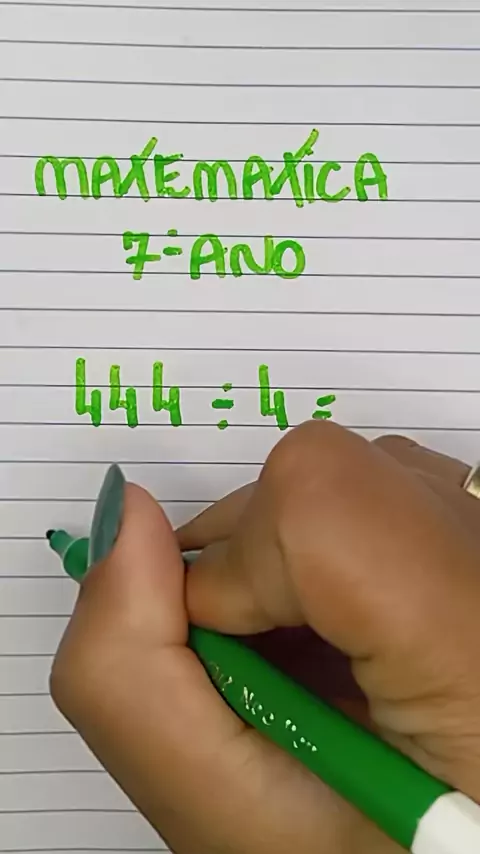 MATEMATICA
7º ANO
444 ÷ 4 =